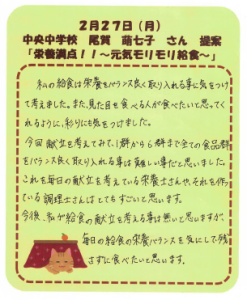 2月27日(月)
中央中学校 尾賀 萌七子 さん 提案
「栄養満点!!～元気モリモリ給食～」
私の給食は栄養をバランス良く取り入れる事に気をつけ
て考えました。また、見た目を食べる人が食べたいと思ってく
れるように、彩りにも気をつけました。
今回献立を考えてみて、1群から6群まで全ての食品群
をバランス良く取り入れる事は難しい事だと思いました。
これを毎日の献立を考えている栄養士さんや、それを作っ
ている調理士さんはとてもすごいと思います。
今後、私が給食の献立を考える事は無いと思いますが、
毎日の給食の栄養バランスを気にして、残
さずに食べたいと思います。